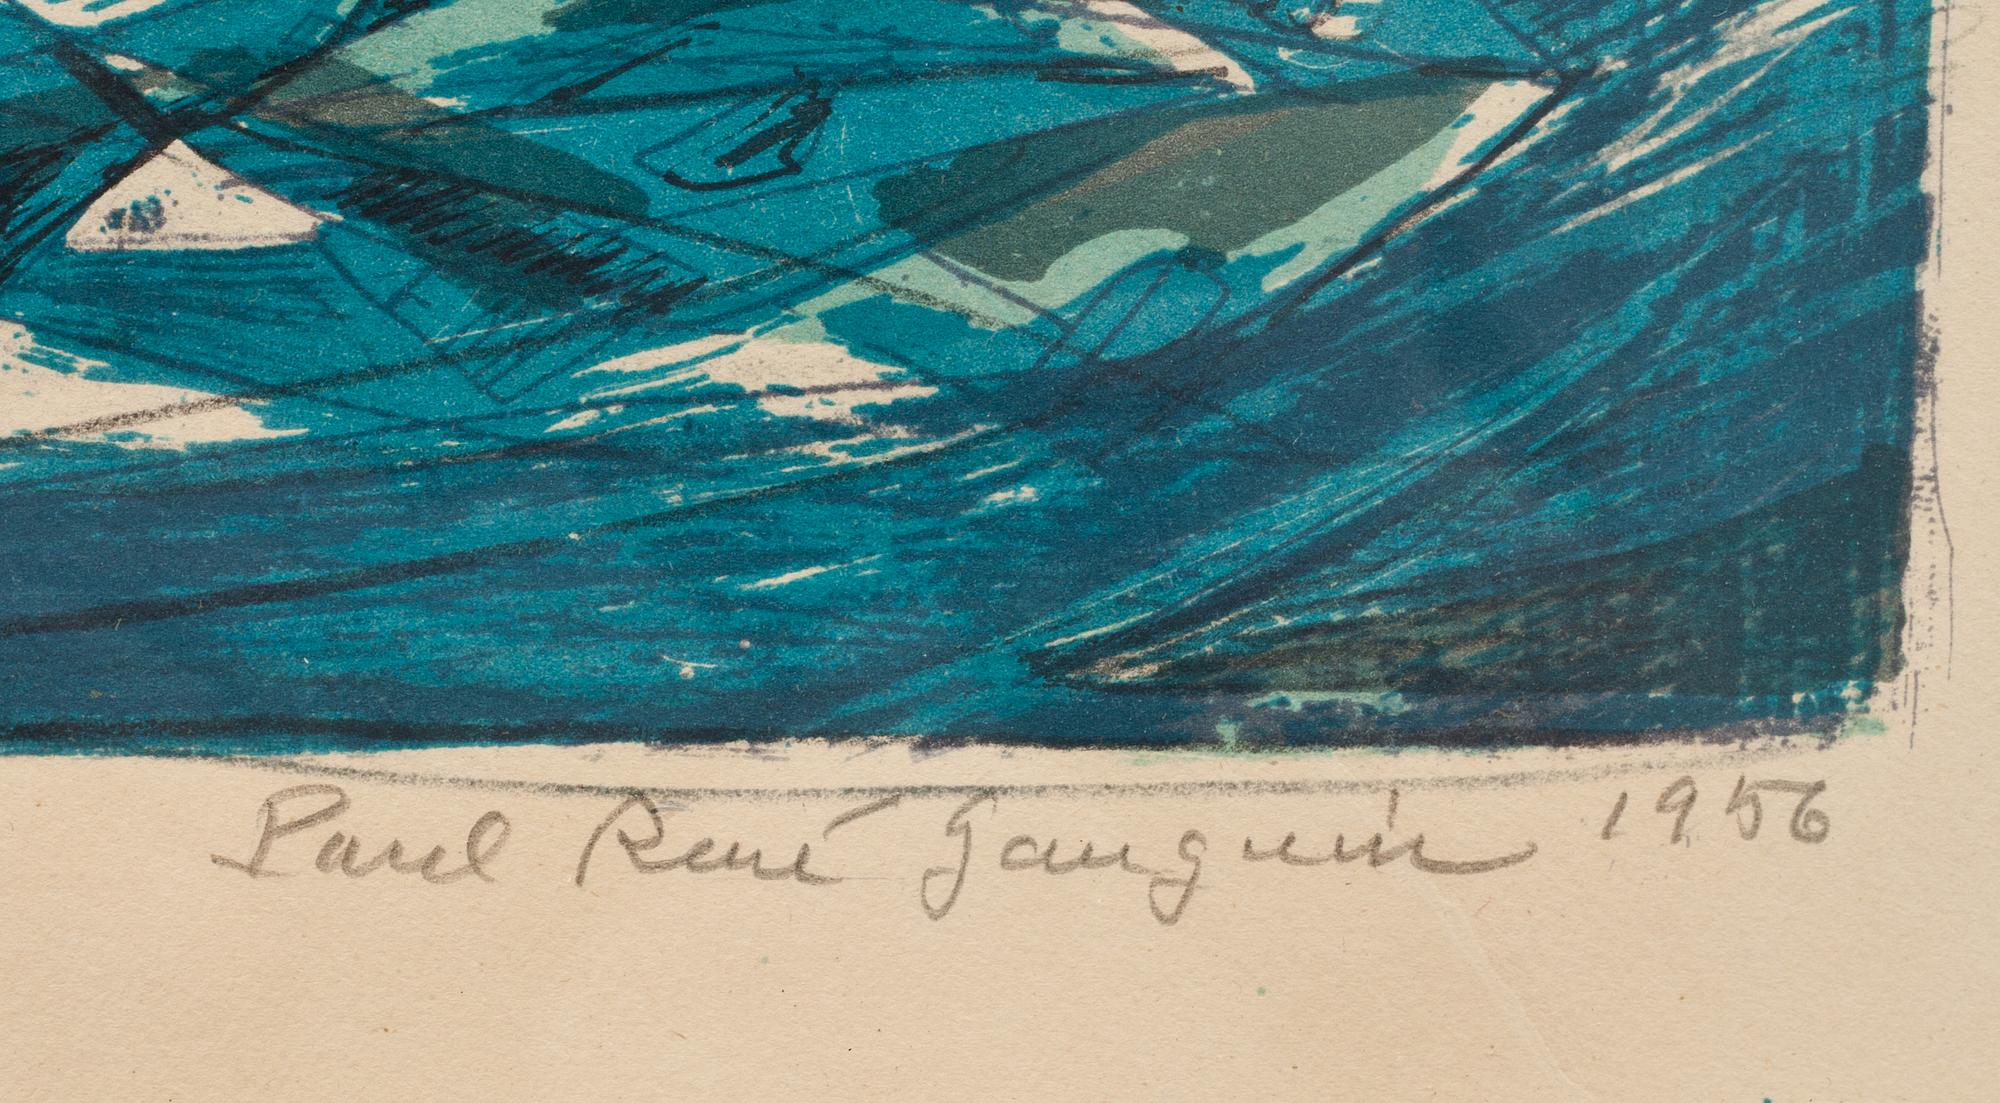 Paul René Gauguin 1956